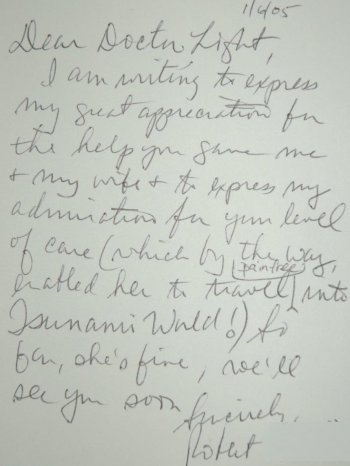 1/6/05
Dear Doctor Light,
I am writing to express
my great appreciation for
the help you gave me
+ my wife + to express my
admiration for your level
of care (which by the way,
painfree
enabled her to travel into
Tsunami World!) So
far, she's fine, we'll
see you soon
Sincerely,
Robert